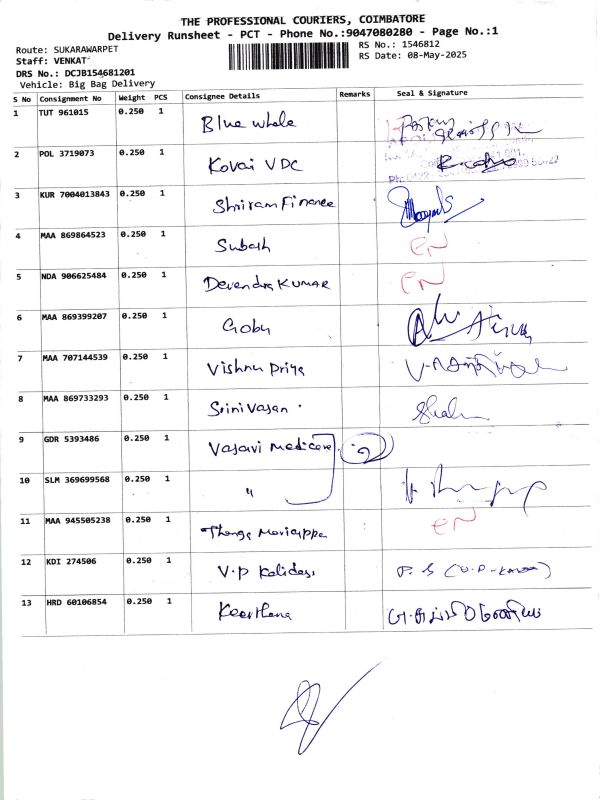 THE PROFESSIONAL COURIERS, COIMBATORE
Delivery Runsheet - PCT - Phone No.:9047080280 - Page No.:1
Route: SUKARAWARPET
RS No.: 1546812
Staff: VENKAT
RS Date: 08-May-2025
DRS No.: DCJB154681201
Vehicle: Big Bag Delivery
S No Consignment No Weight PCS Consignee Details Remarks Seal & Signature
1 TUT 961015 0.250 1 Blue whale
2 POL 3719073 0.250 1 Kovai VDC
3 KUR 7004013843 0.250 1 Shriram Finance
4 MAA 869864523 0.250 1 Subash EN
5 NDA 906625484 0.250 1 Devendra KUMAR EN
6 MAA 869399207 0.250 1 Gobu
7 MAA 707144539 0.250 1 Vishnu Priya
8 MAA 869733293 0.250 1 Srinivasan
9 GDR 5393486 0.250 1 Vasavi medicare
10 SLM 369699568 0.250 1 "
11 MAA 945505238 0.250 1 EN
12 KDI 274506 0.250 1 V.P Kalidass
13 HRD 60106854 0.250 1 Keerthana